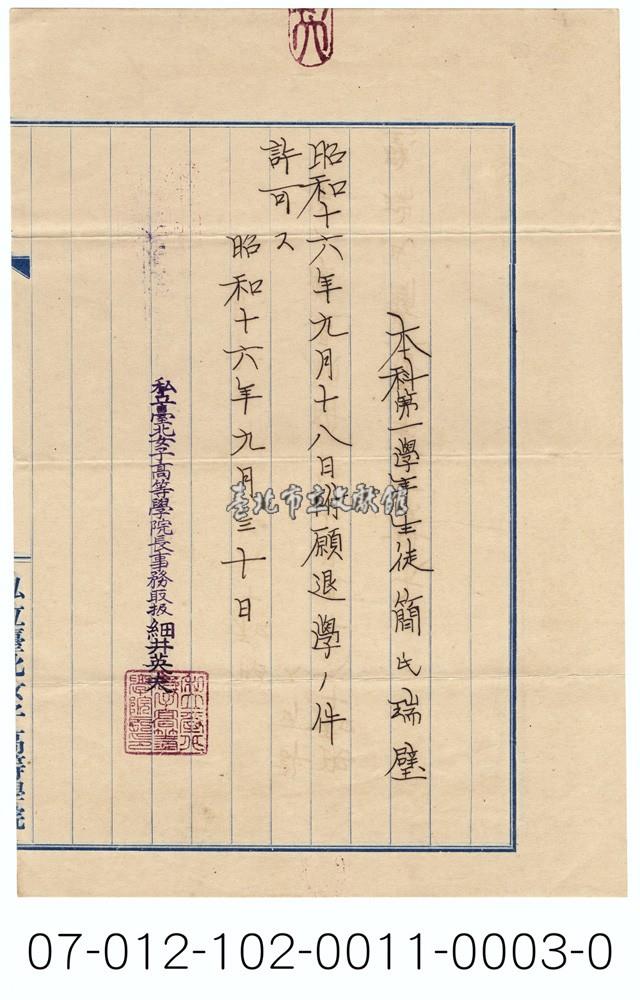 本科第一學年生徒簡氏瑞璧
昭和十六年九月十八日附願退學ノ件
許可ス
昭和十六年九月三十日
私立臺北女子高等學院長事務取扱 細井英夫
私立臺北女子高等學院
臺北市立文獻館
07-012-102-0011-0003-0